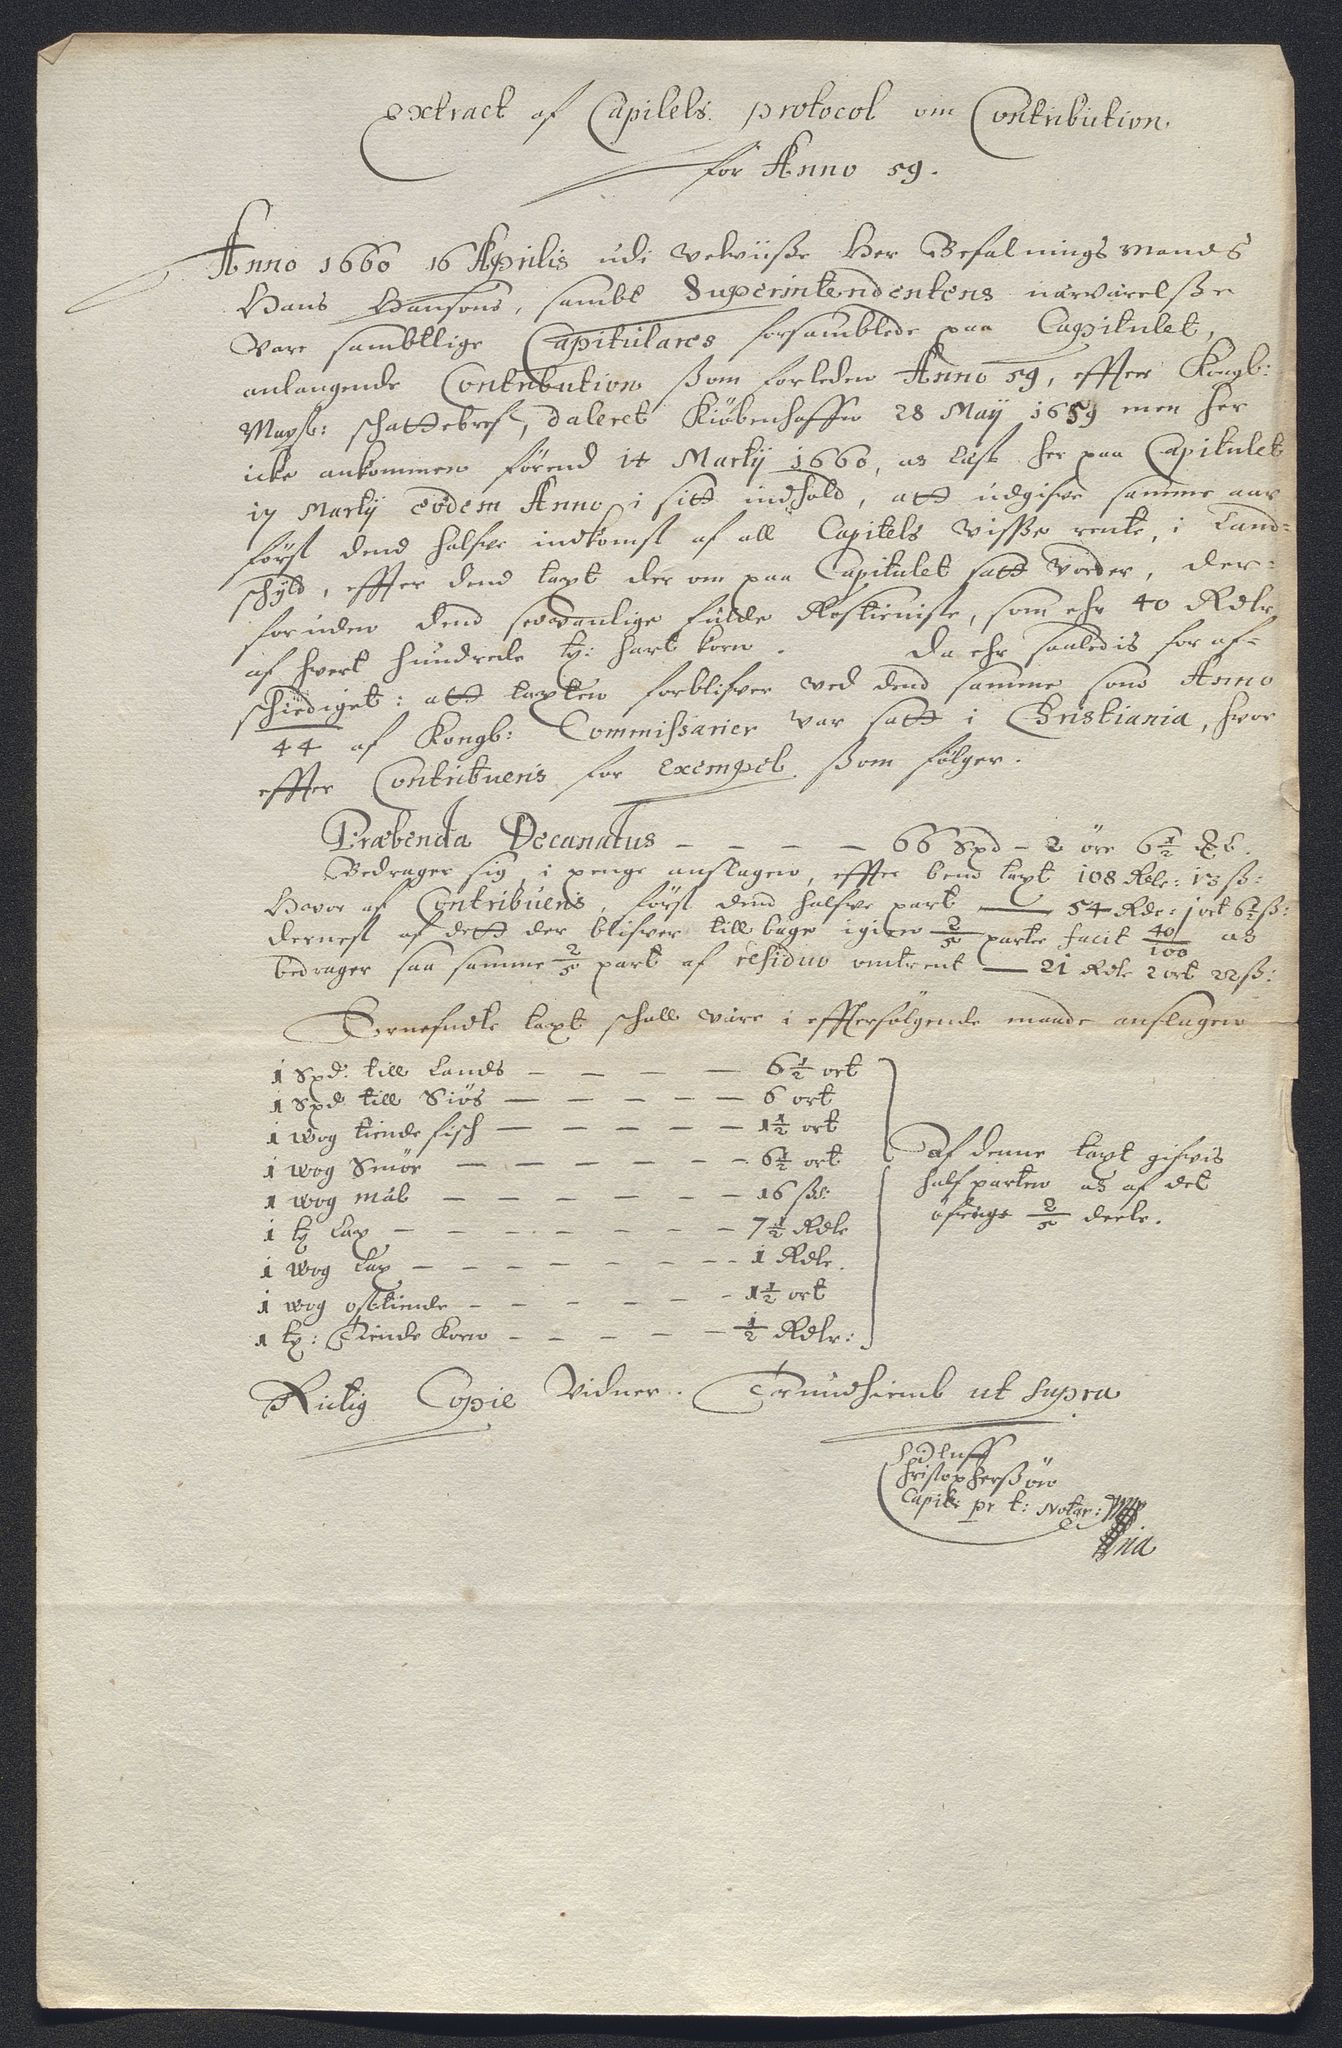 Extract af Capitels protocol om Contribution
for Anno 59.
Anno 1660 16 Aprilis udi velviise Her Befalnings mands
Hans Hansøns, sambt Superintendentens nærværelsse
Vare sambtlige Capitulares forsamblede paa Capitulet,
anlangende Contribution som forleden Anno 59, effter Kongl:
Mayst: schattebref, dateret Kiöbenhaffn 28 Maij 1659 men her
icke ankommen förend 14 Martij 1660, oc læst her paa Capitulet
17 Martij eodem Anno i sitt indhold, att udgifve samme aar
först dend halfve indkomst af all Capitels visse rente, i Land-
schyld, effter dend taxt der om paa Capitulet satt vorder, der-
foruden dend sedvanlige fulde Rostieniste, som ehr 40 Rdlr
af hvert hundrede tr: hart korn. Da ehr saaledis for af-
schiediget: att taxten forblifver ved dend samme som Anno
44 af Kongl: Commissarier var satt i Christiania, hvor
effter Contribueris for Exempel som fölger.
Præbenda Decanatus - - - - 66 Spd - 2 öre 6½
Bedrager sig i penge anslagen, effter bem taxt 108 Rdlr: 13 ß:
Hvor af Contribueris, först dend halfve part — 54 Rdr: 1 ort 6½ ß:
dernest af dett der blifver till bage igien 2/5 parter facit 40/100 oc
bedrager saa samme 2/5 part af residuo omtrent — 21 Rdlr 2 ort 22 ß:
Fornefndte taxt schall være i effterfölgende maade anslagen
1 Spd: till Lands - - - - 6½ ort
1 Spd till Siös - - - - - 6 ort
1 wog tiende fisch - - - - - 1½ ort
1 wog Smör - - - - - - 6½ ort
1 wog miæl - - - - - - 16 ßl:
1 tr Lax - - - - - - - 7½ Rdlr
1 wog Lax - - - - - - - 1 Rdlr.
1 wog ostetiende - - - - - - 1½ ort
1 tr: Tiende Korn - - - - - ½ Rdlr:
Af denne taxt gifvis
half parten oc af det
öfrige 2/5 deele.
Rictig Copie Vidner. Trundhiemb ut supra
Edluff
Christophersøn
Capit: pr t: Notar:
mp
ria